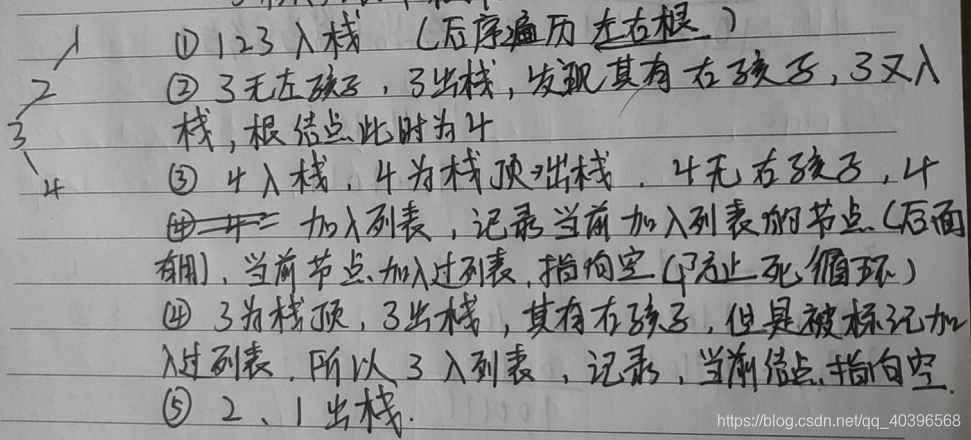 1
① 123入栈 (后序遍历 左右根)
2
② 3无左孩子,3出栈,发现其有右孩子,3又入
3
栈,根结点此时为4
4
③ 4入栈,4为栈顶,出栈,4无右孩子,4
加入列表,记录当前加入列表的节点(后面
有用),当前节点加入过列表,指向空(防止死循环)
④ 3为栈顶,3出栈,其有右孩子,但是被标记加
入过列表,所以3入列表,记录,当前结点指向空.
⑤ 2、1出栈.
https://blog.csdn.net/qq_40396568